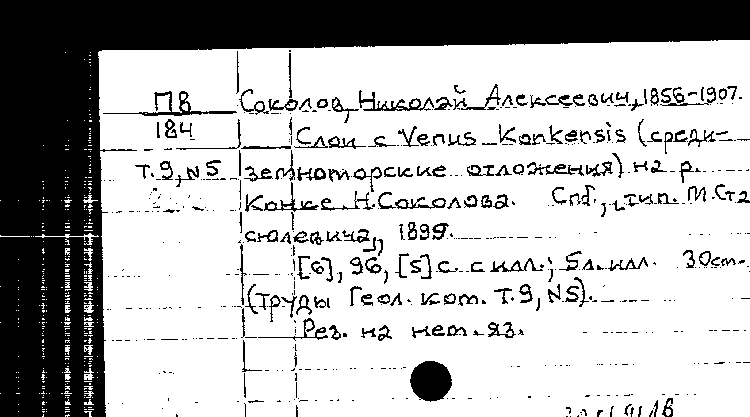 ПВ Соколов, Николай Алексеевич, 1856-1907.
184 Слои с Venus Konkensis (среди-
т.9, N5 земноморские отложения) на р.
Конке. Н. Соколова. Спб., тип. М.Ста
сюлевича, 1899.
[6], 96, [5] с. с илл.; 5л. илл. 30см.
(Труды Геол. ком. Т.9, N5).
Рез. на нем. яз.